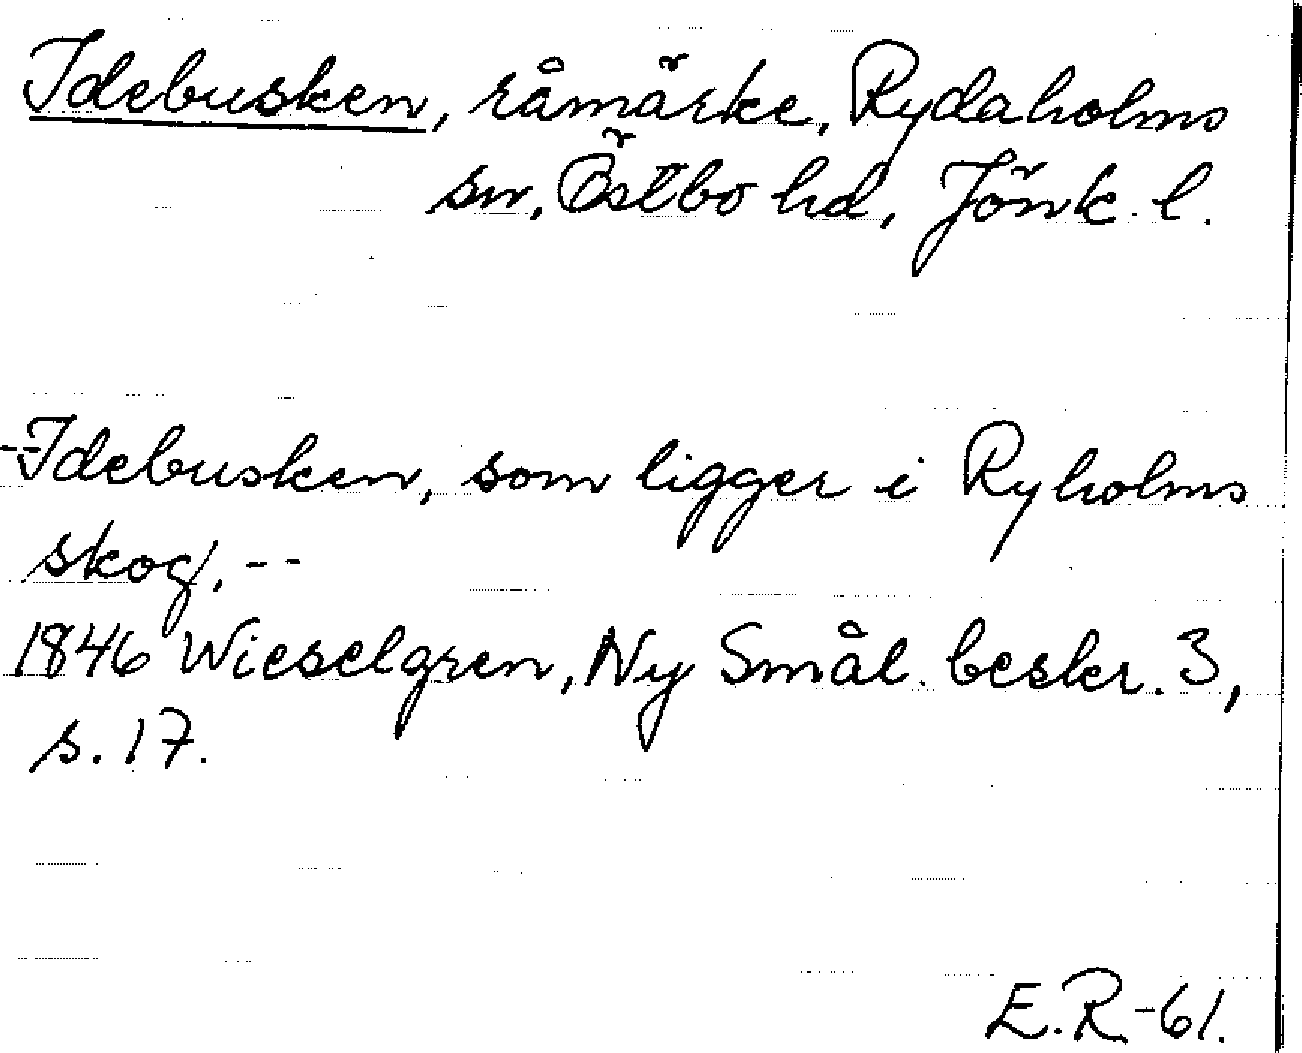 Idebusken, råmärke, Rydaholms
sn, Östbo hd, Jönk. l.
--Idebusken, som ligger i Ryholms
skog, --
1846 Wieselgren, Ny Smål. beskr. 3,
s. 17.
E.R.-61.